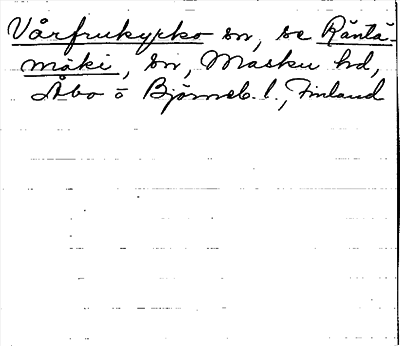 Vårfrukyrko sn, se Räntä-
mäki, sn, Masku hd,
Åbo o Björneb. l., Finland